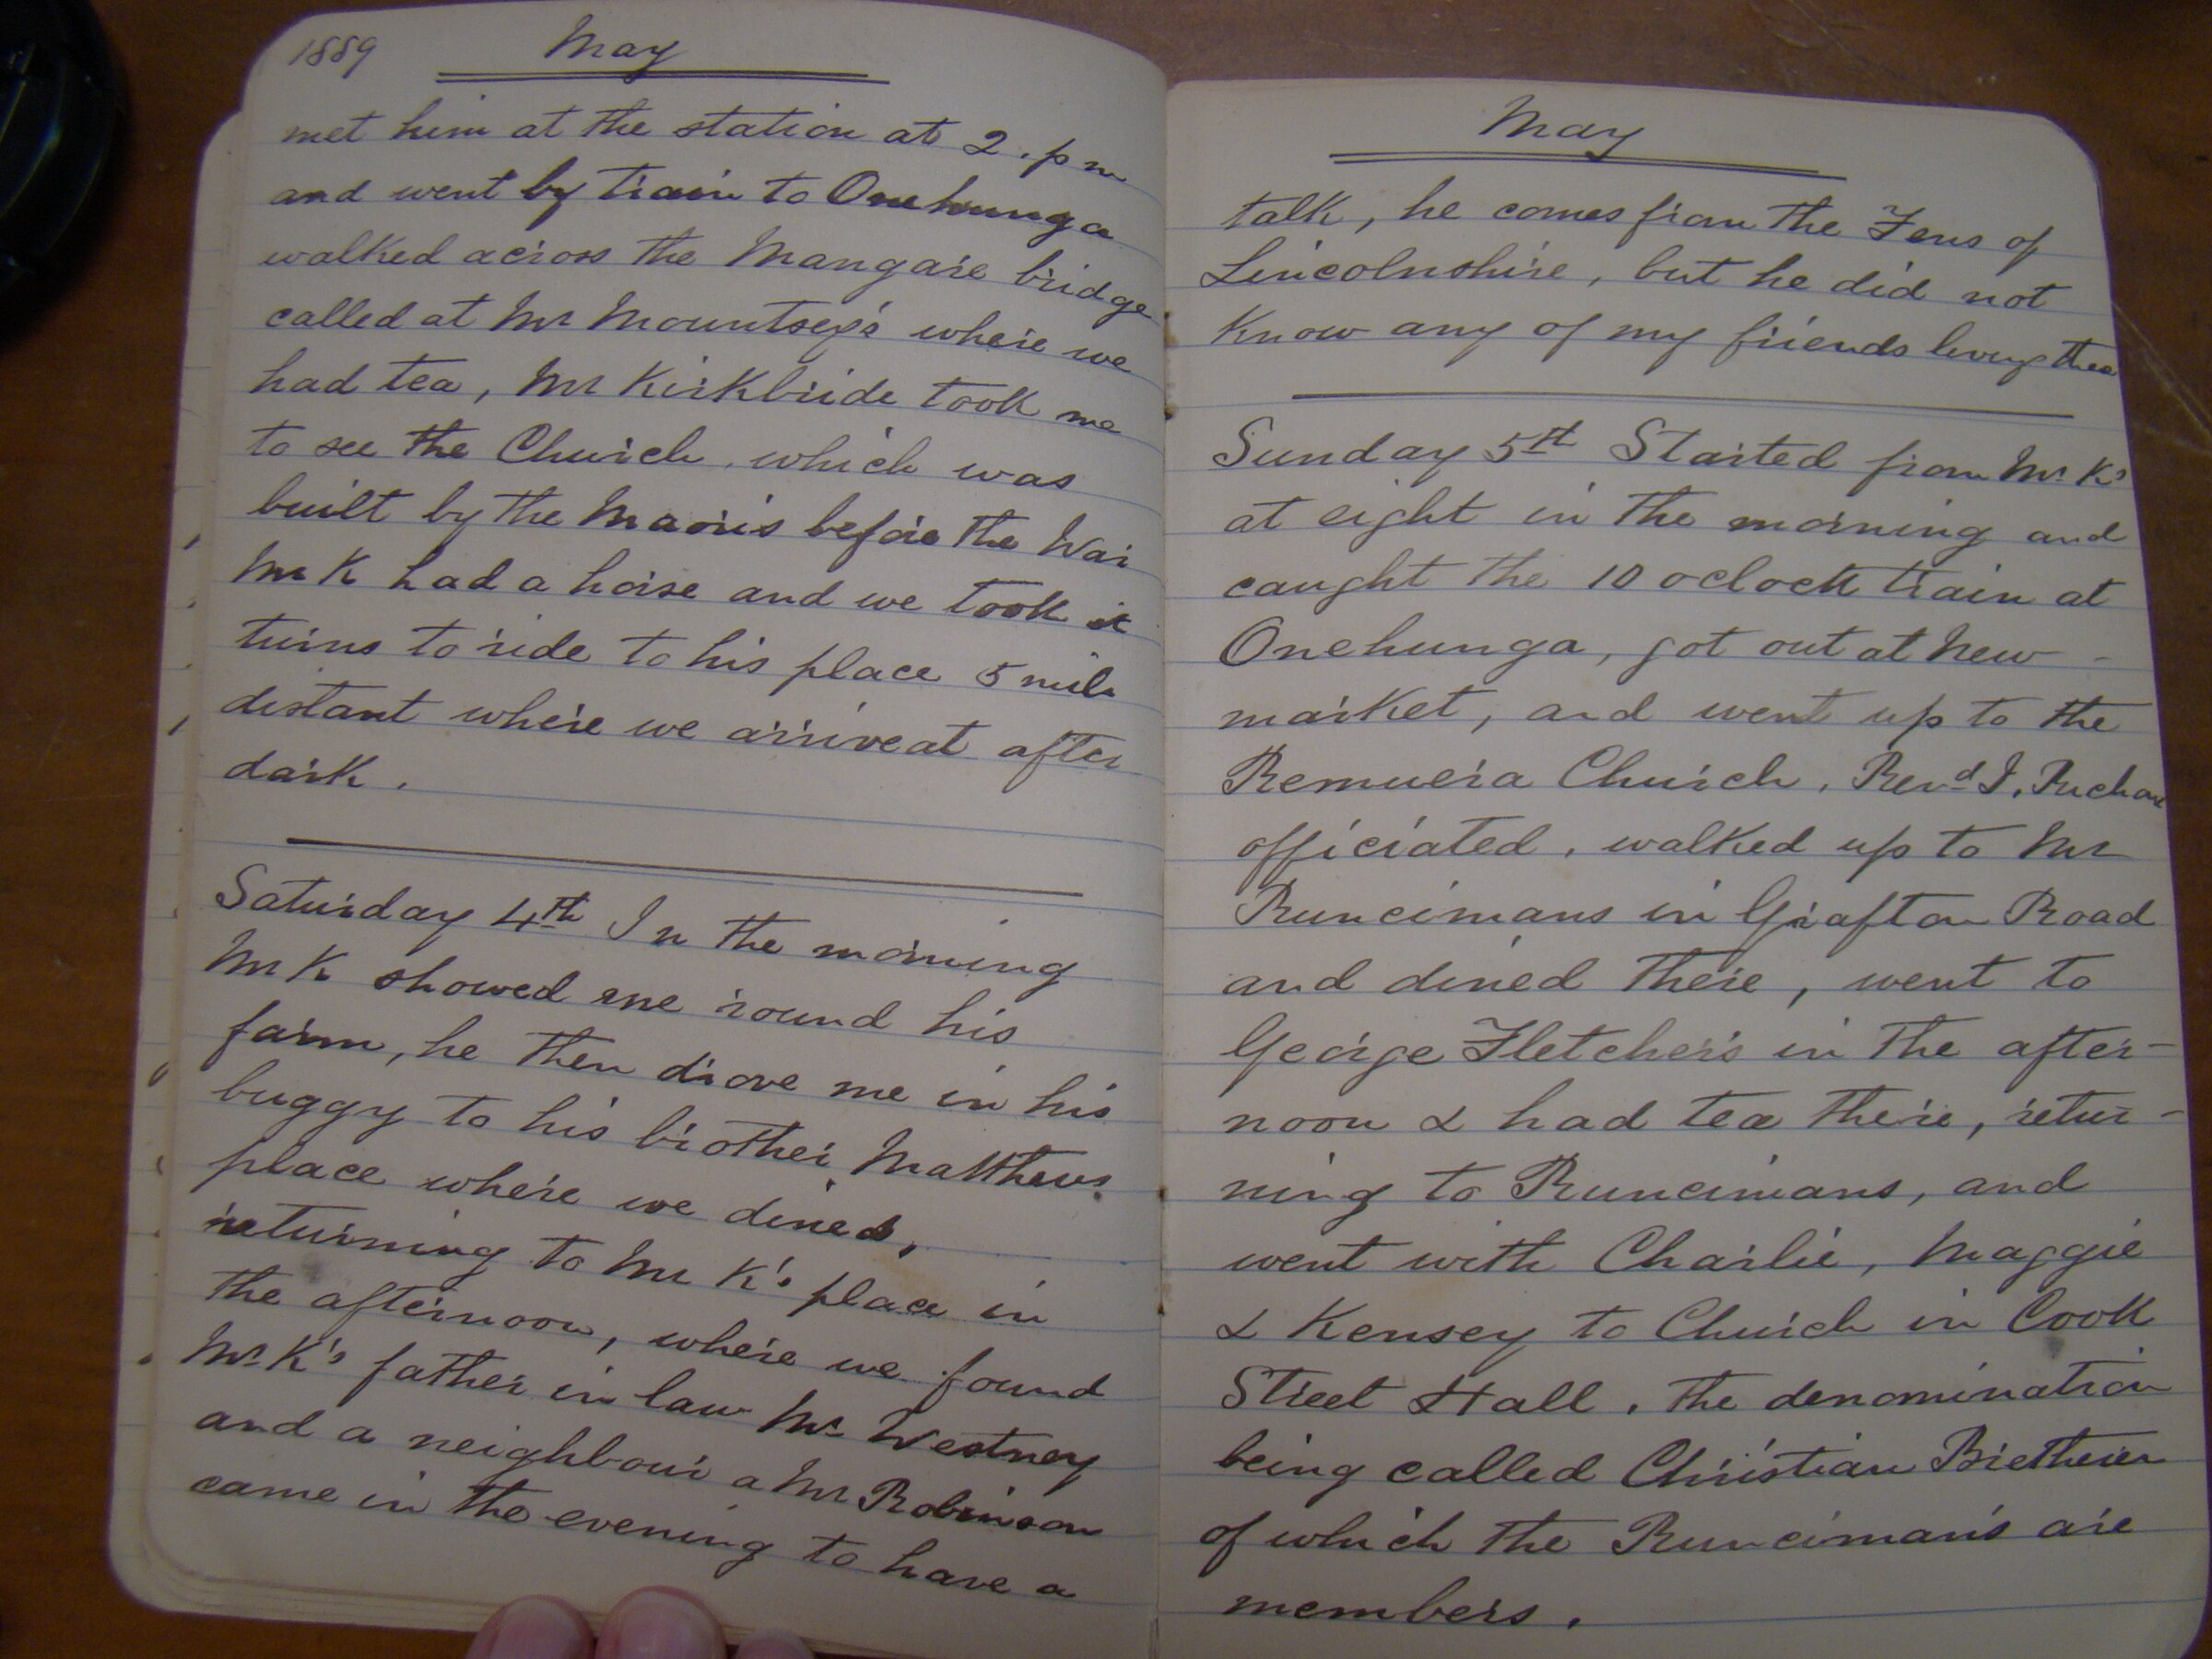 1889 May
met him at the station at 2.pm
and went by train to Onehunga
walked across the Mangare bridge
called at Mr Mountsey's where we
had tea, Mr Kirkbride took me
to see the Church, which was
built by the Maoris before the War
Mr K had a horse and we took it
turns to ride to his place 5 mile
distant where we arrive at after
dark.
Saturday 4th In the morning
Mr K showed me round his
farm, he then drove me in his
buggy to his brother Matthews
place where we dined,
returning to Mr K's place in
the afternoon, where we found
Mr K's father in law Mr Westney
and a neighbour a Mr Robinson
came in the evening to have a
May
talk, he comes from the Fens of
Lincolnshire, but he did not
know any of my friends living there
Sunday 5th Started from Mr K's
at eight in the morning and
caught the 10 oclock train at
Onehunga, got out at New-
market, and went up to the
Remuera Church, Revd I.
officiated, walked up to Mr
Runcimans in Grafton Road
and dined there, went to
George Fletchers in the after-
noon & had tea there, retur-
ning to Runcimans, and
went with Charlie, Maggie
& Kensey to Church in Cook
Street Hall, the denomination
being called Christian Bretheren
of which the Runciman's are
members.